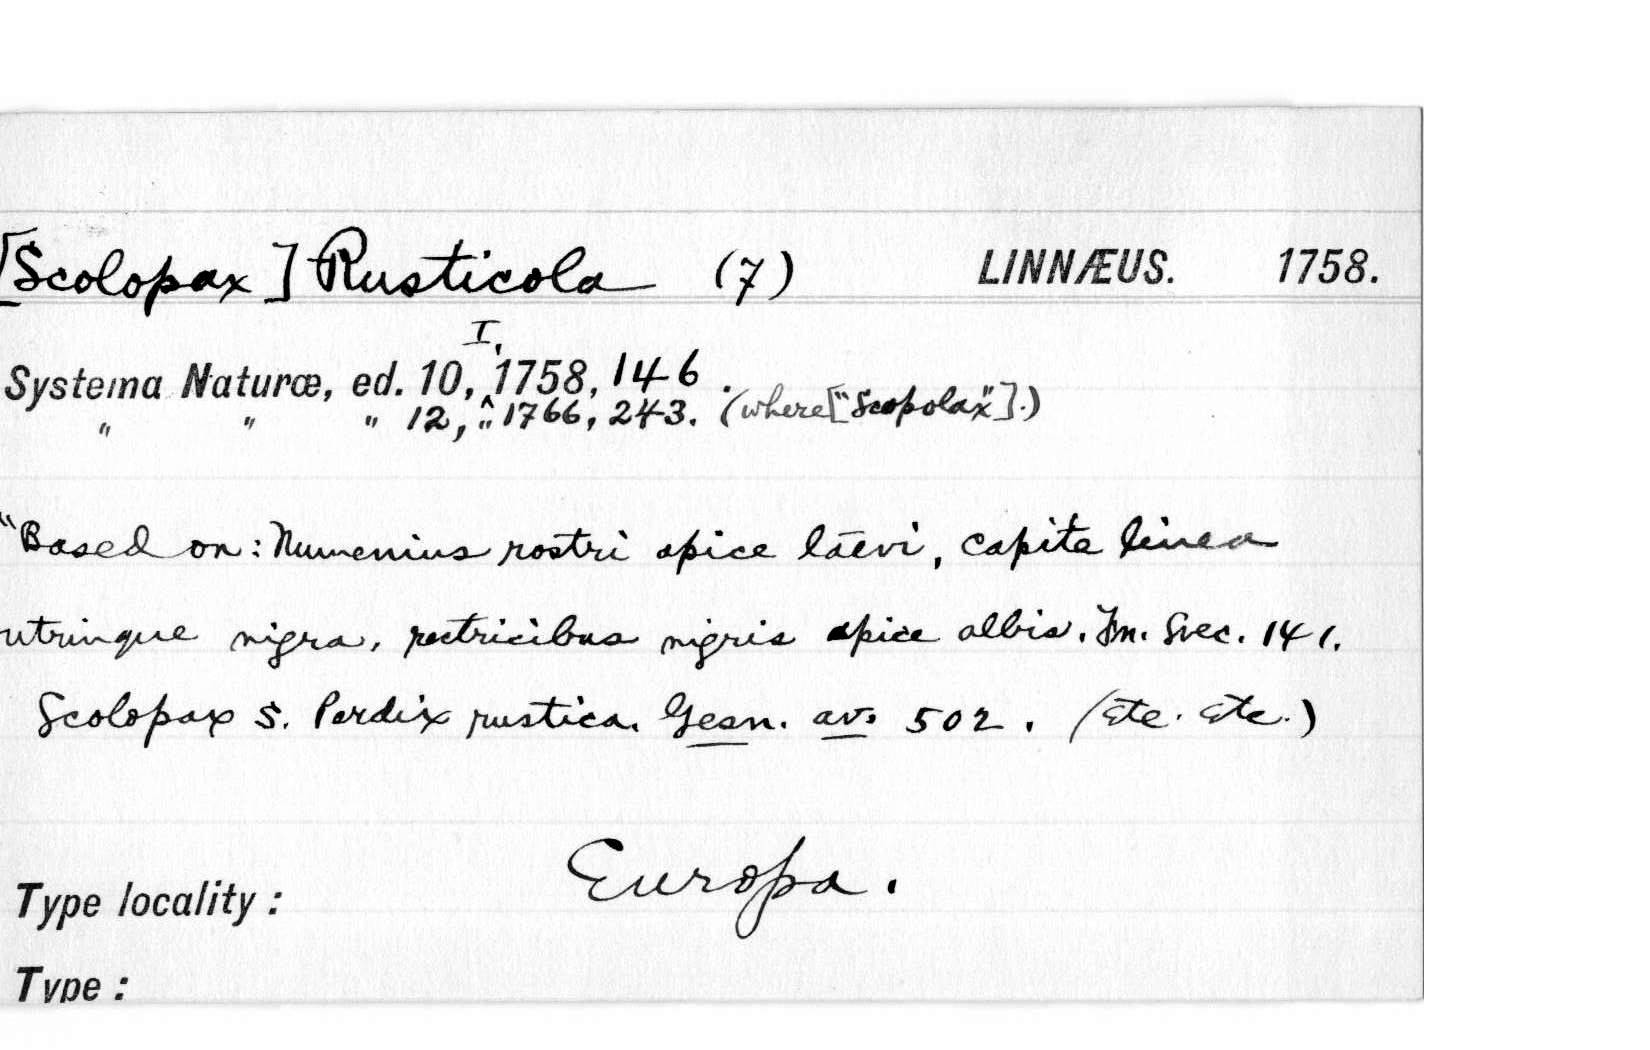 [Scolopax] Rusticola (7) LINNÆUS. 1758.
I,
Systema Naturæ, ed. 10, ^ 1758, 146.
" " " 12, " 1766, 243. (where ["Scopolax"].)
"Based on: Numenius rostri apice lævi, capite linea
utrinque nigra, rectricibus nigris apice albis. Fn. Svec. 141.
Scolopax S. Perdix rustica. Gesn. av. 502. (Etc. Etc.)
Type locality: Europa.
Type: